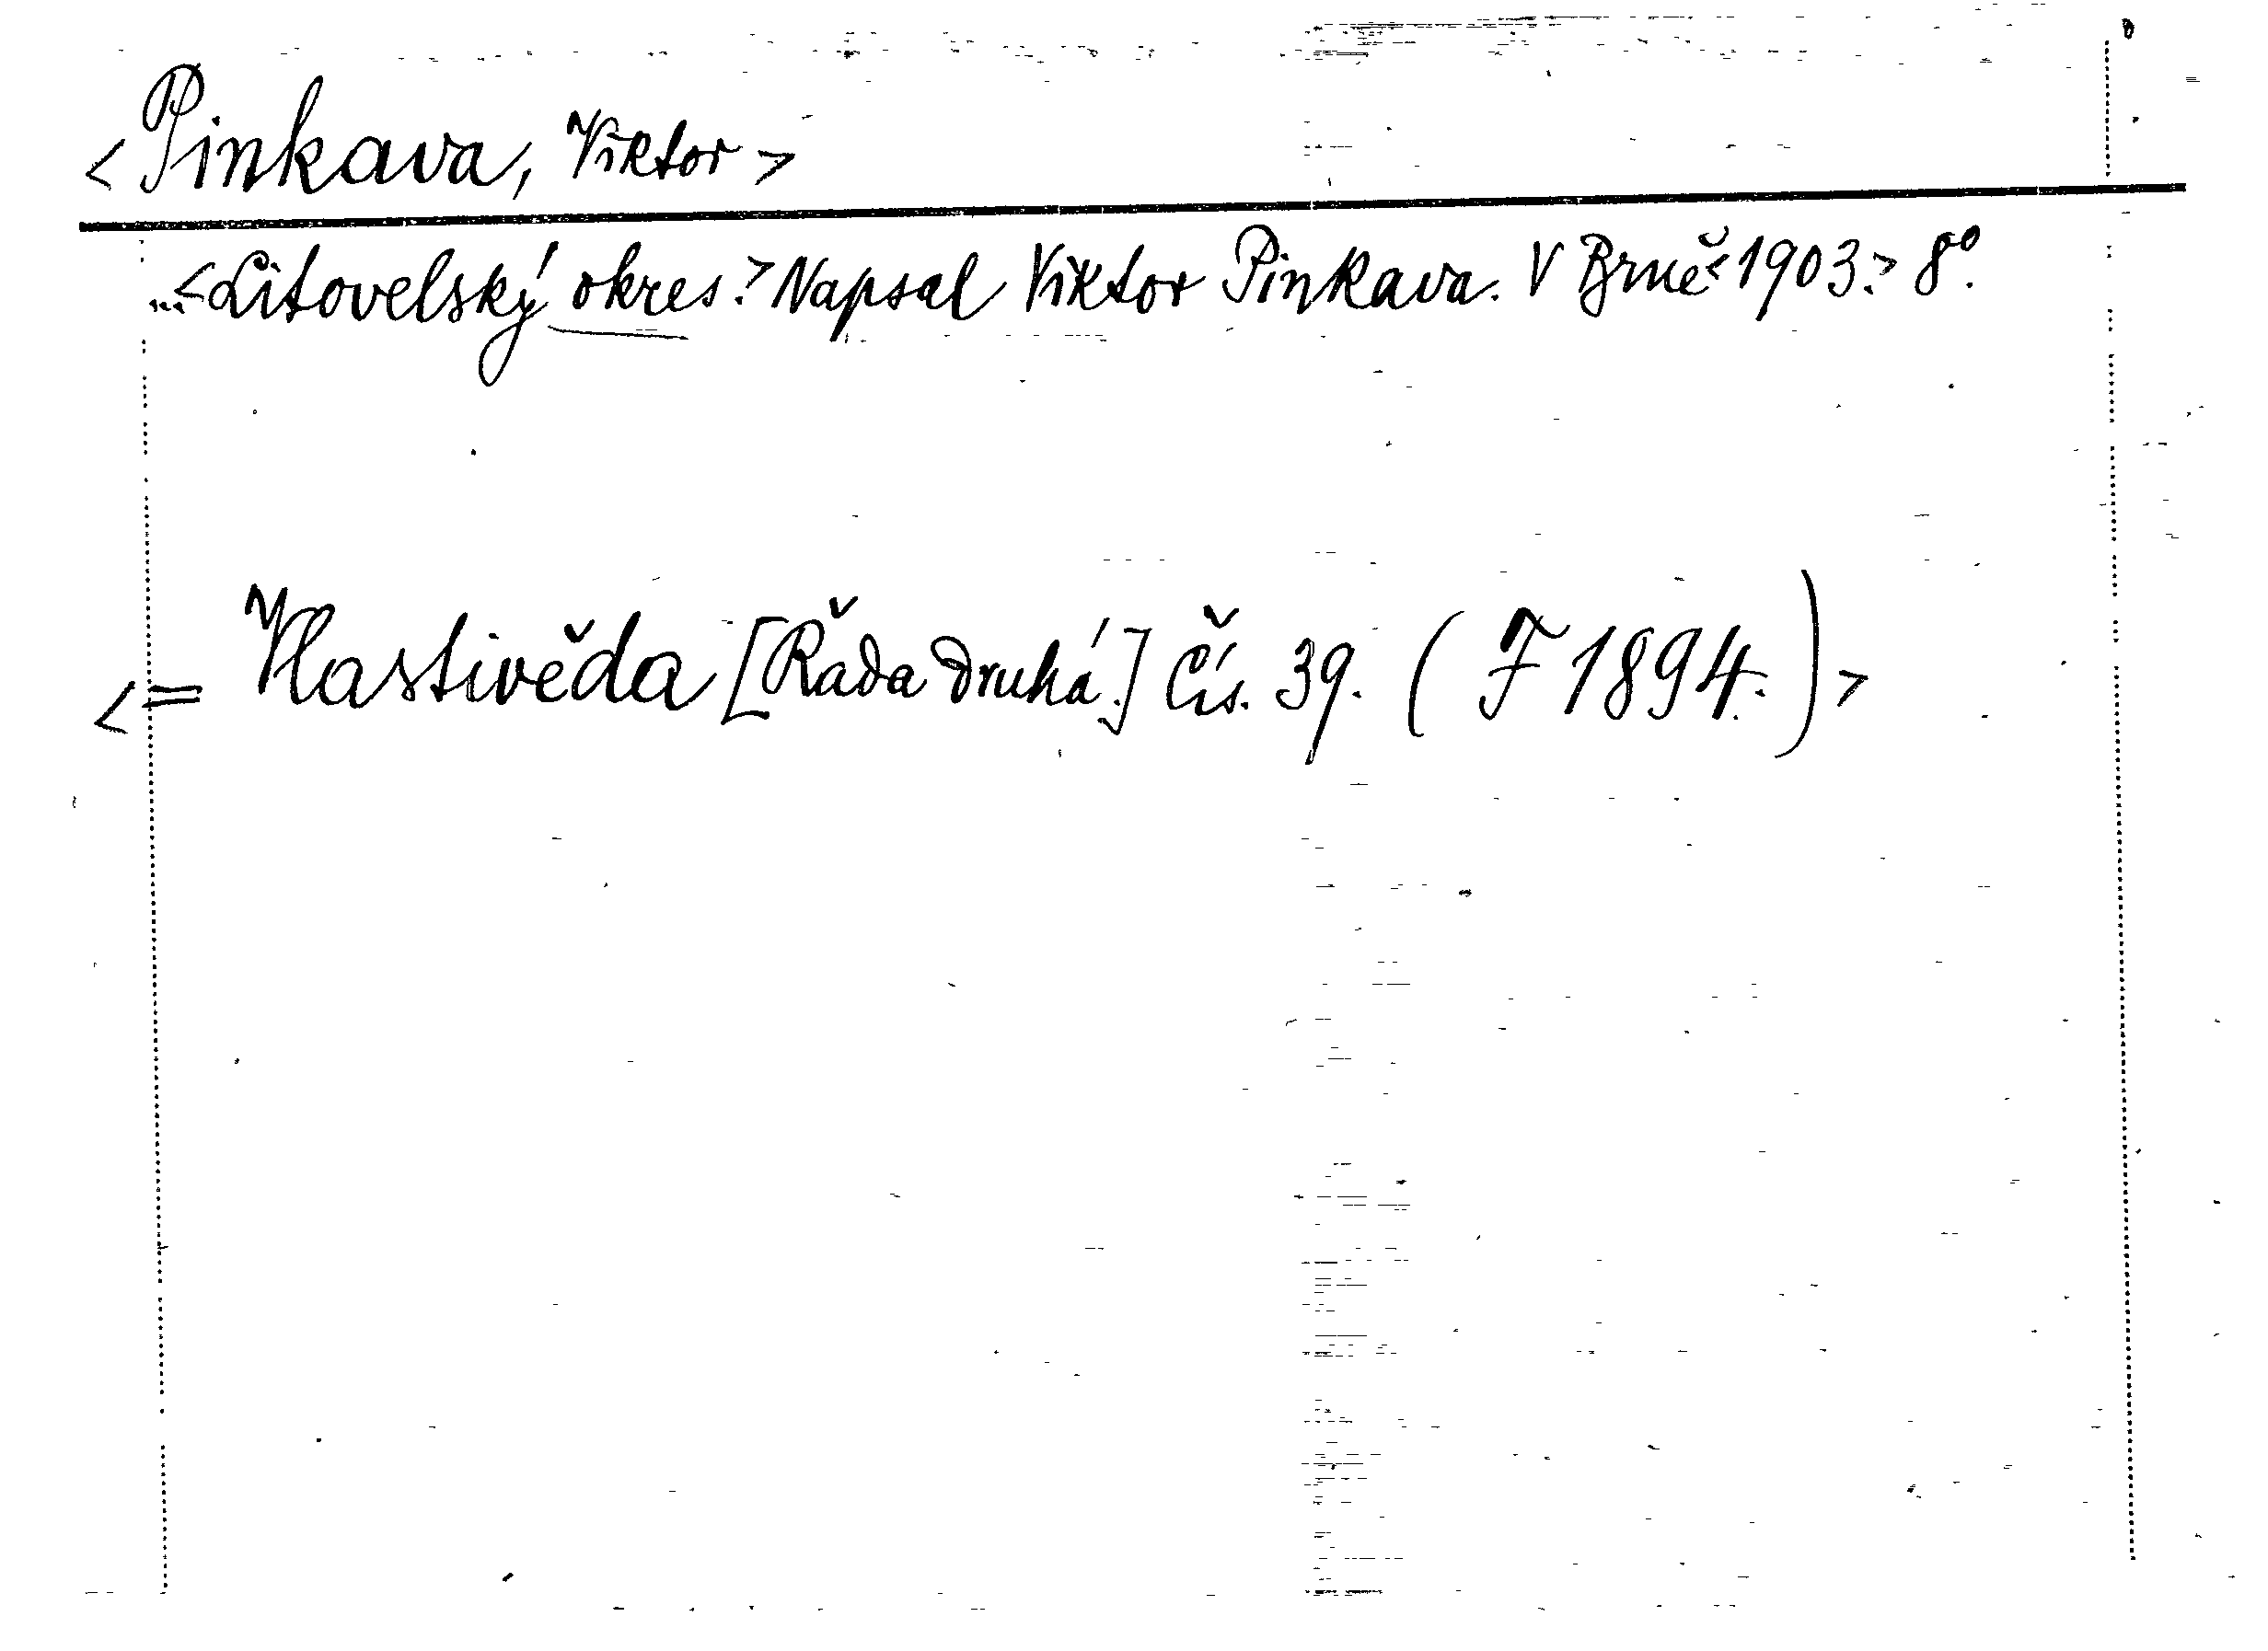 <Pinkava, Viktor>
...<Litovelský okres.> Napsal Viktor Pinkava. V Brně <1903.> 8°.
<= Vlastivěda [Řada druhá.] Čís. 39. (F 1894.)>